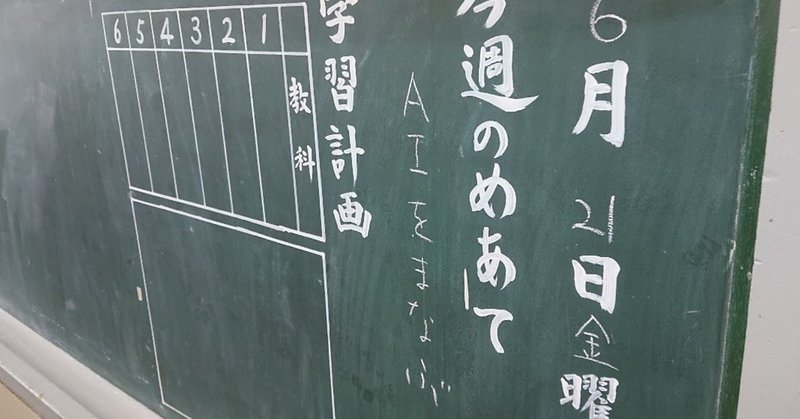 6月21日金曜
今週のめあて
AIをまなぶ
学習計画
教科
1
2
3
4
5
6